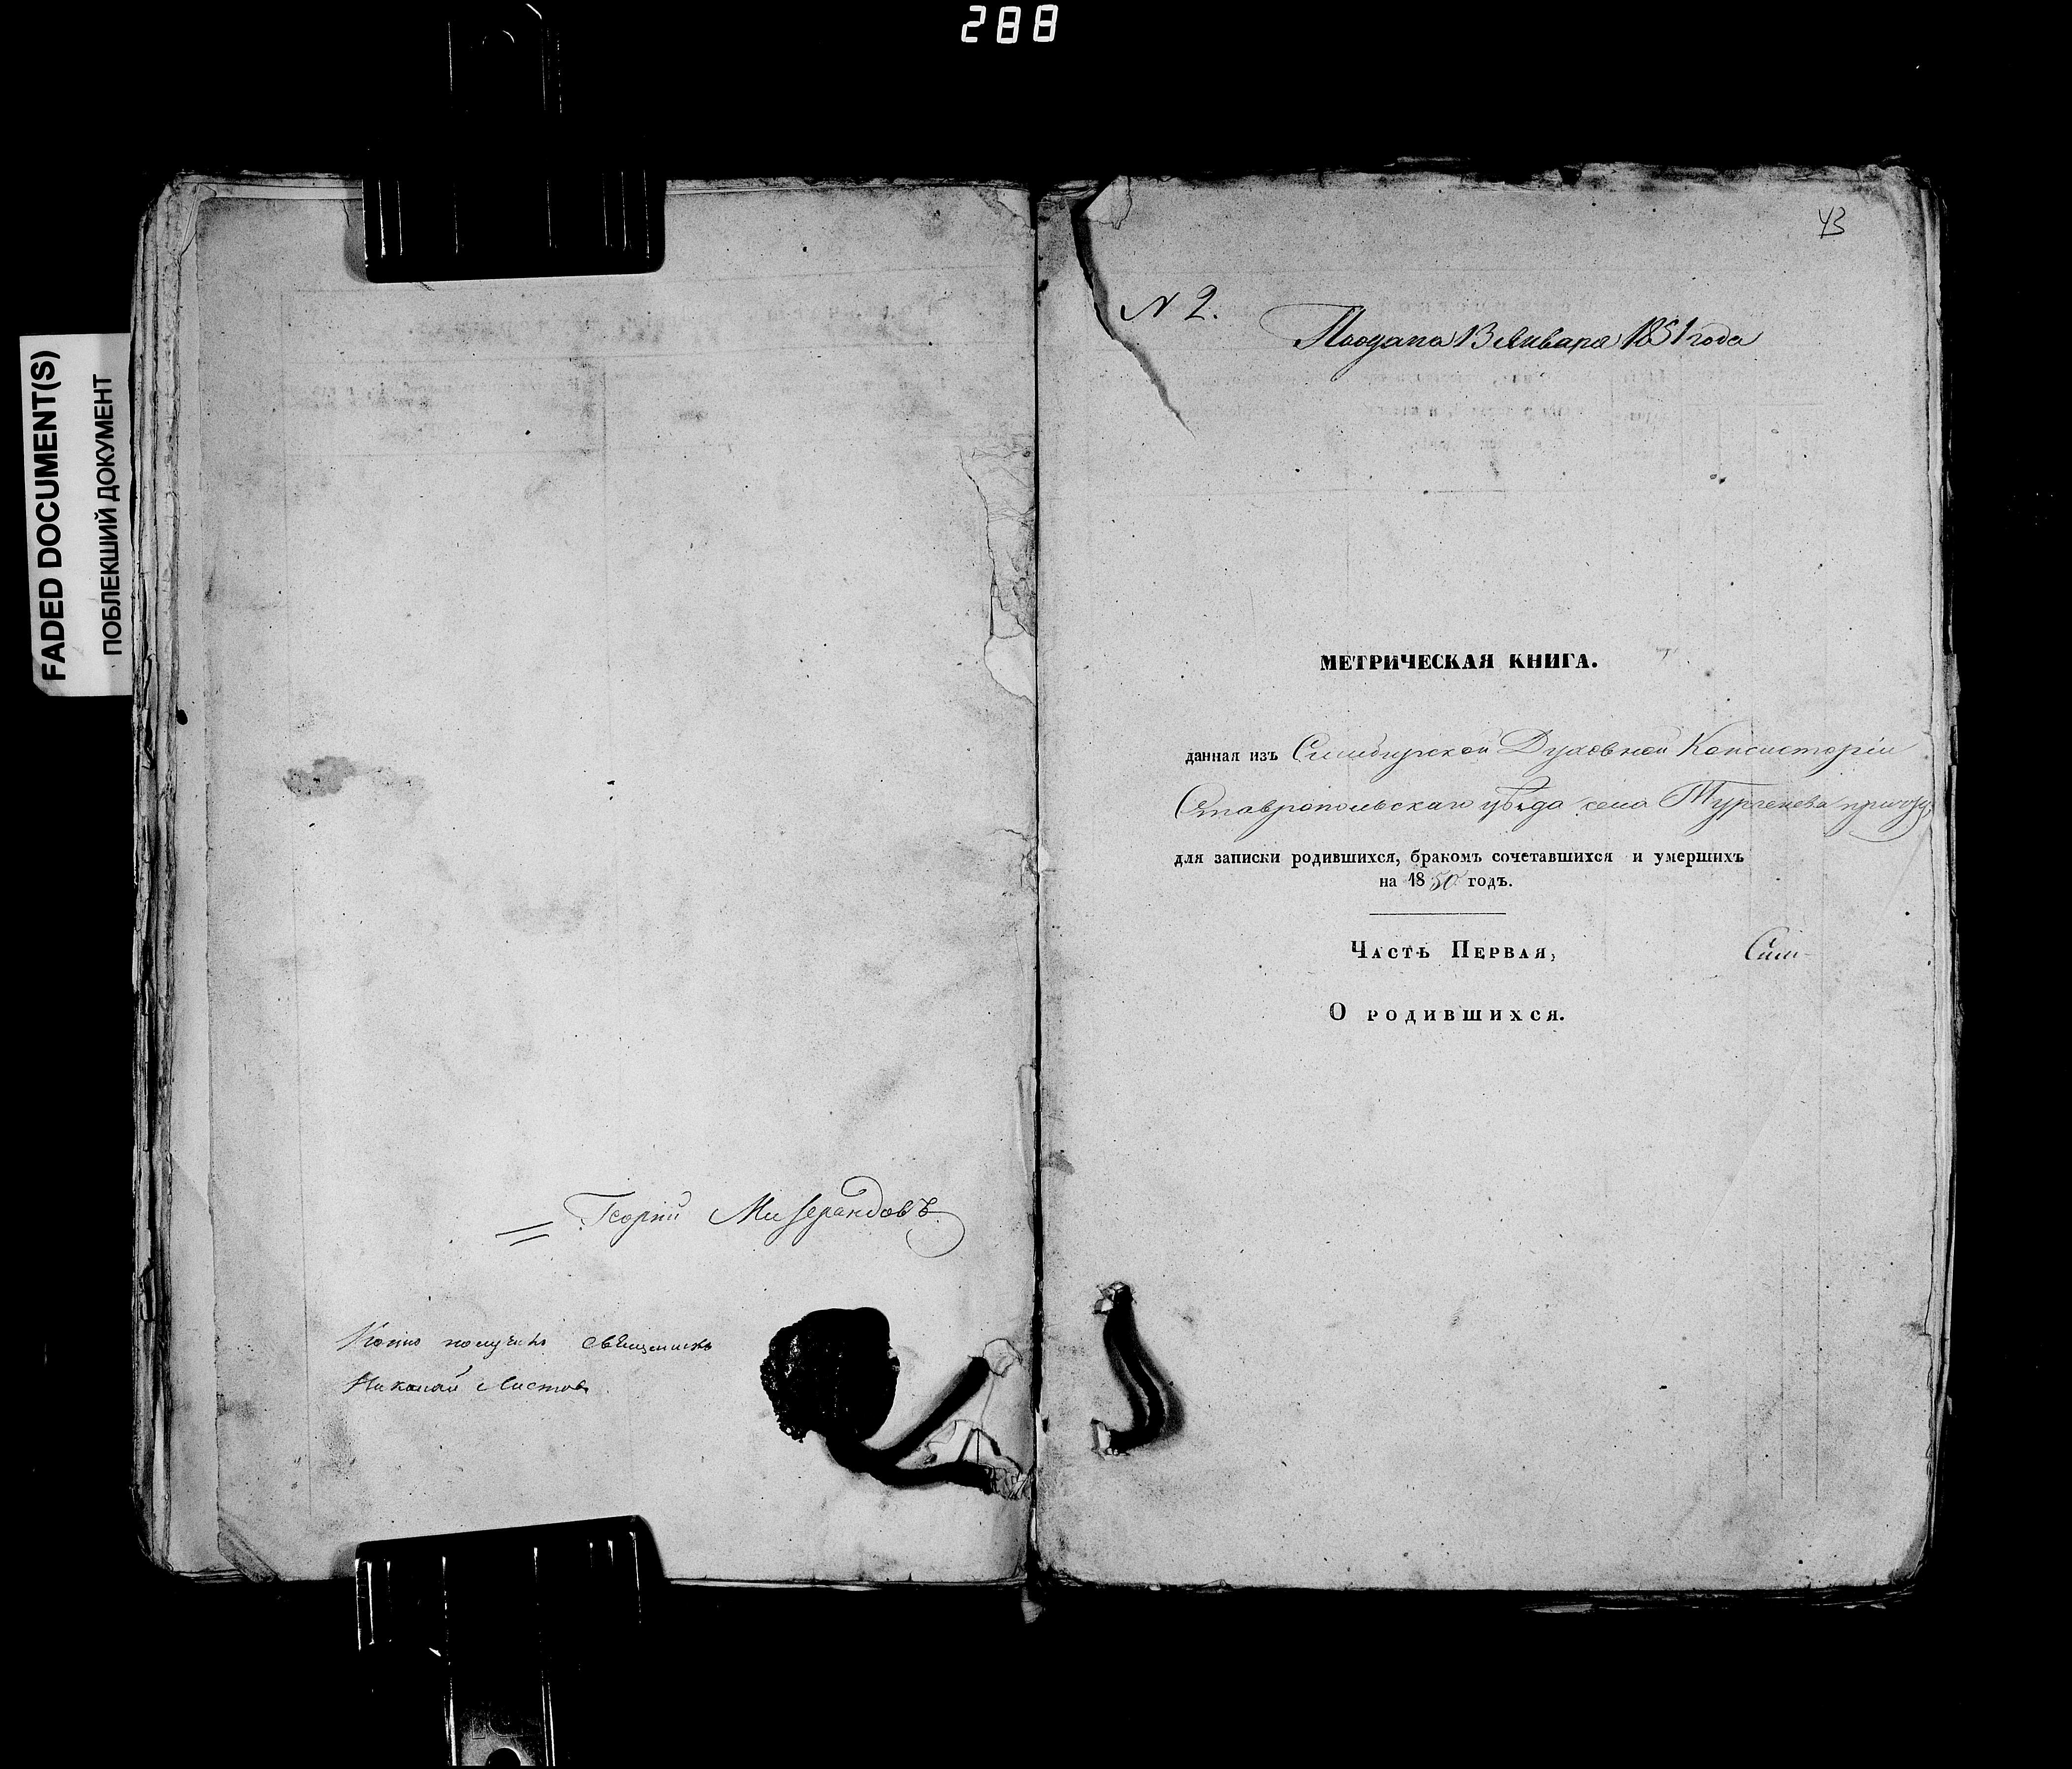 288
FADED DOCUMENT(S)
ПОБЛЕКШИЙ ДОКУМЕНТ
Георгий Мизерандовъ
Копію получилъ священникъ
Николай Листовъ
43
N 2.
Подана 13 Января 1851 года
МЕТРИЧЕСКАЯ КНИГА.
данная изъ Симбирской Духовной Консисторіи
Ставропольскаго уѣзда села Тургенева
для записки родившихся, бракомъ сочетавшихся и умершихъ
на 1850 годъ.
Часть Первая,
Сим-
О родившихся.